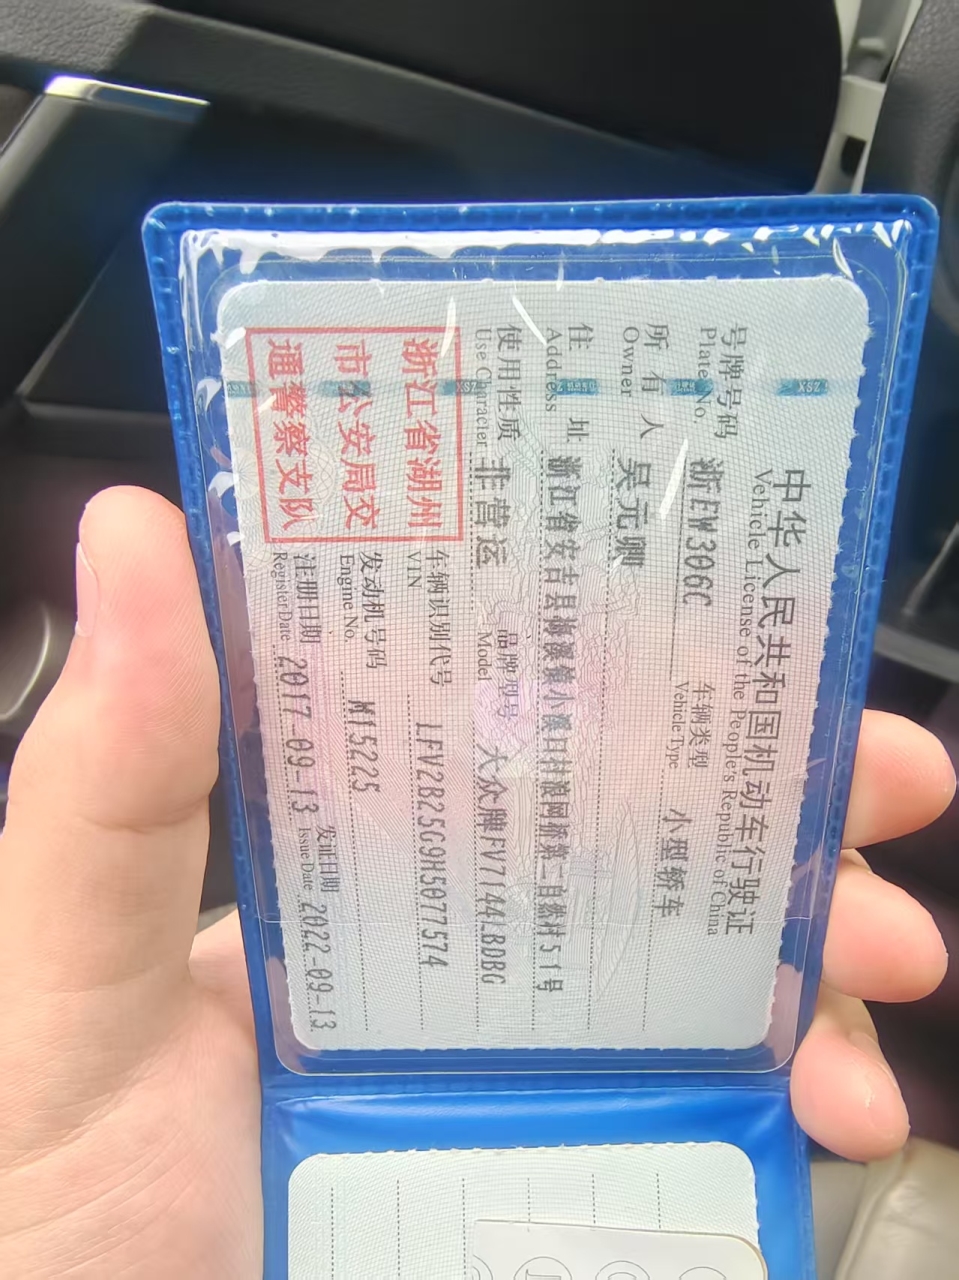 中华人民共和国机动车行驶证
Vehicle License of the People's Republic of China
号牌号码 浙EW306C 车辆类型 小型轿车
Plate No. Vehicle Type
所有人 吴元卿
Owner
住址 浙江省安吉县梅溪镇小溪口村浪网桥第二自然村51号
Address
使用性质 非营运 品牌型号 大众牌FV7144LBDBG
Use Character Model
浙江省湖州
市公安局交
通警察支队
车辆识别代号 LFV2B25G9H5077574
VIN
发动机号码 M15225
Engine No.
注册日期 2017-09-13 发证日期 2022-09-13
Register Date Issue Date